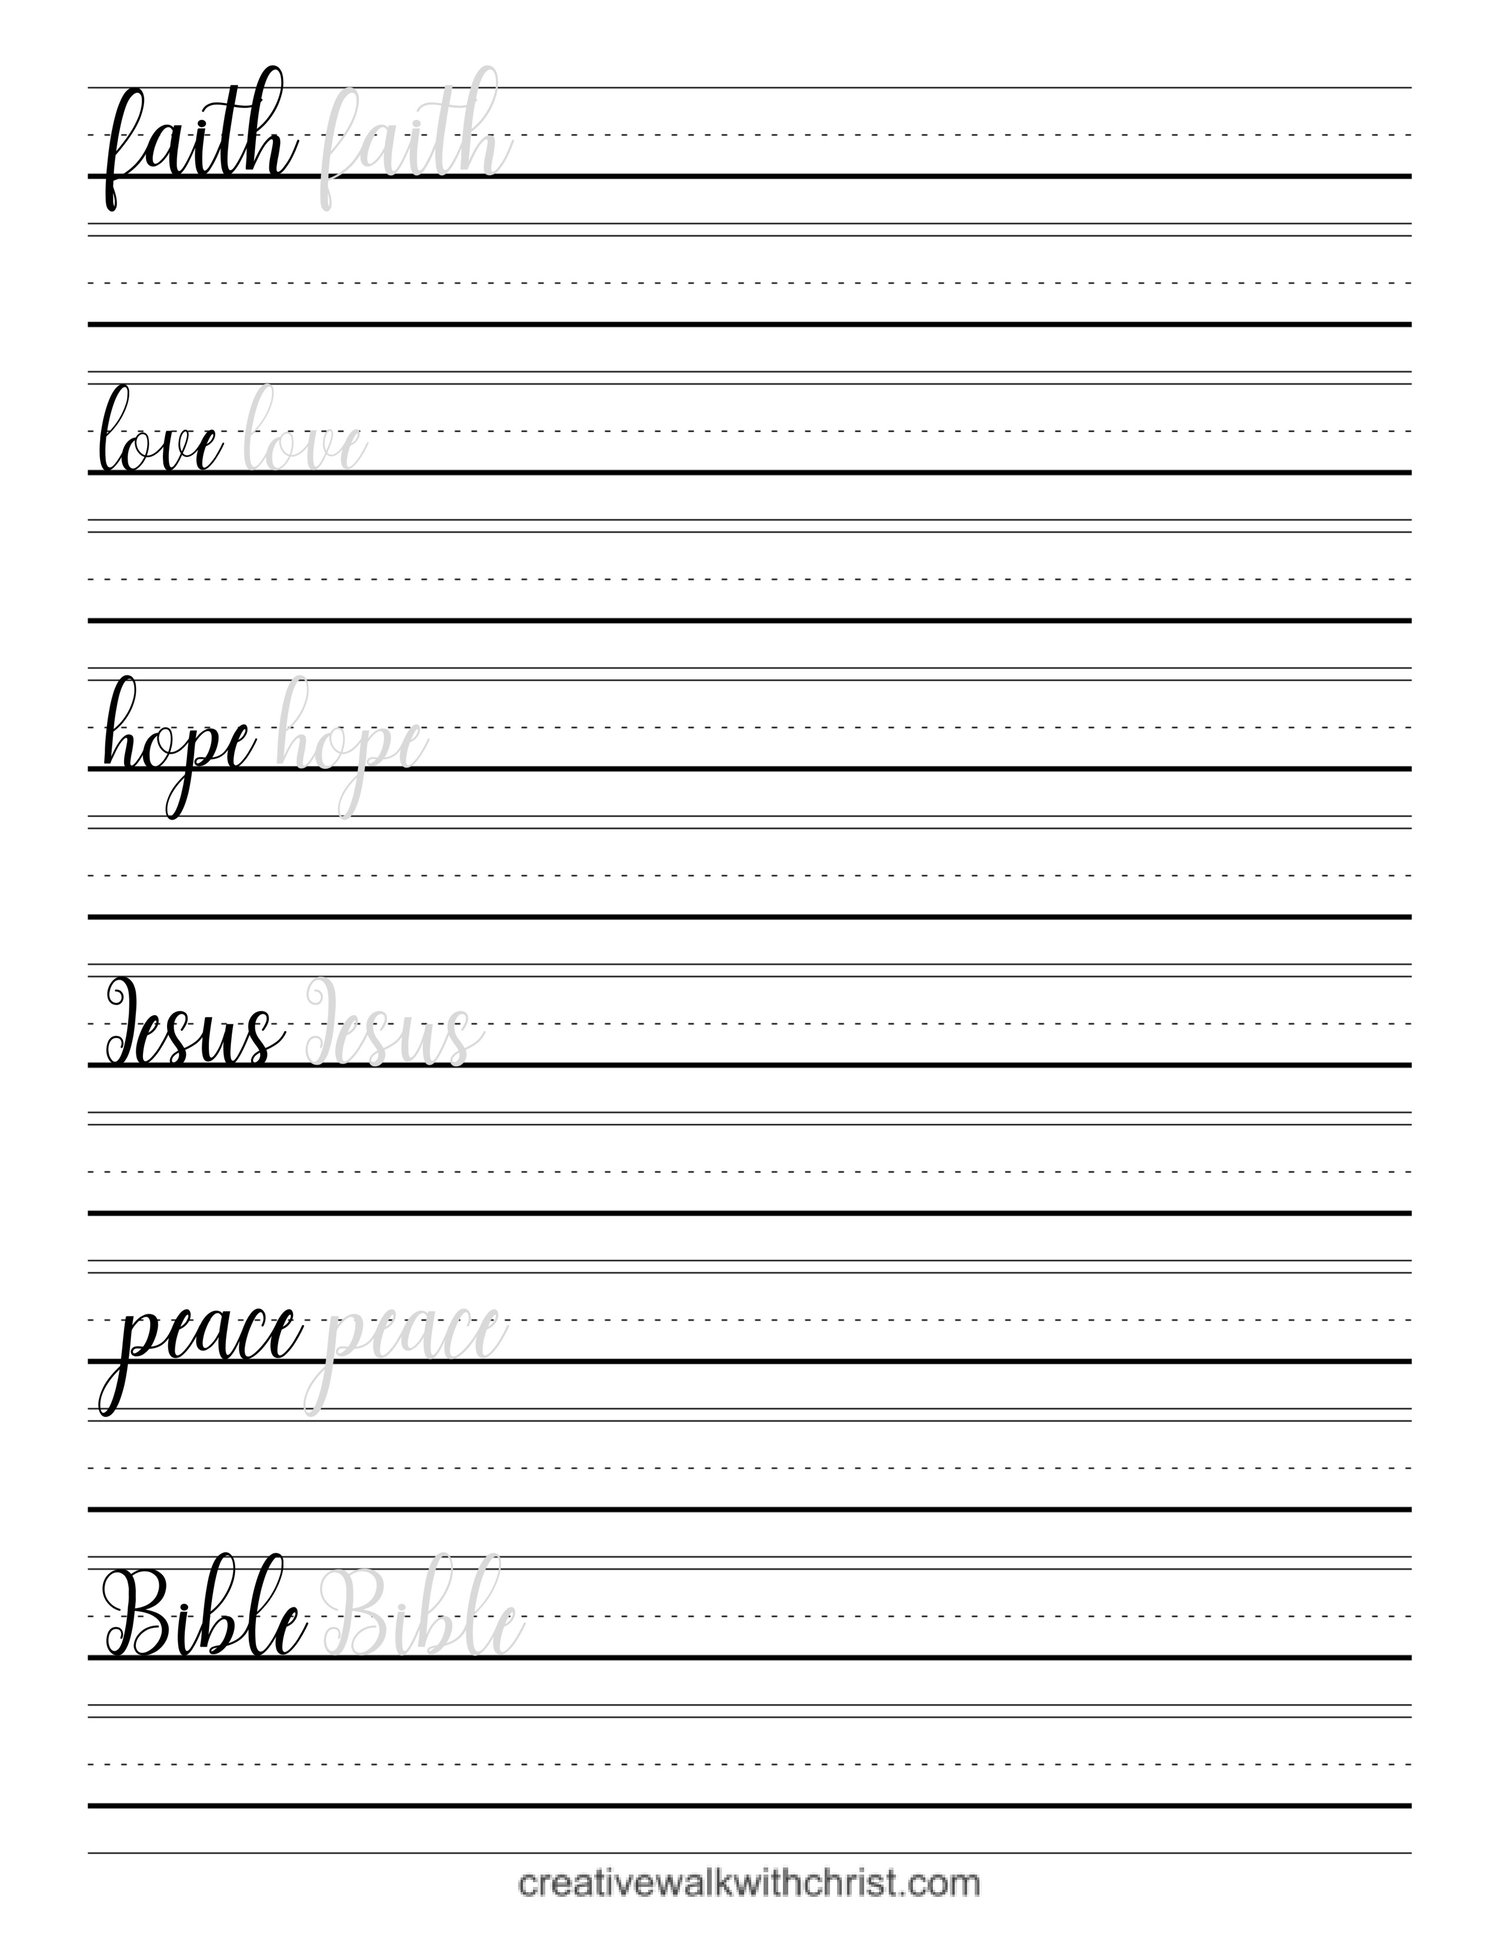 faith faith
love love
hope hope
Jesus Jesus
peace peace
Bible Bible
creativewalkwithchrist.com